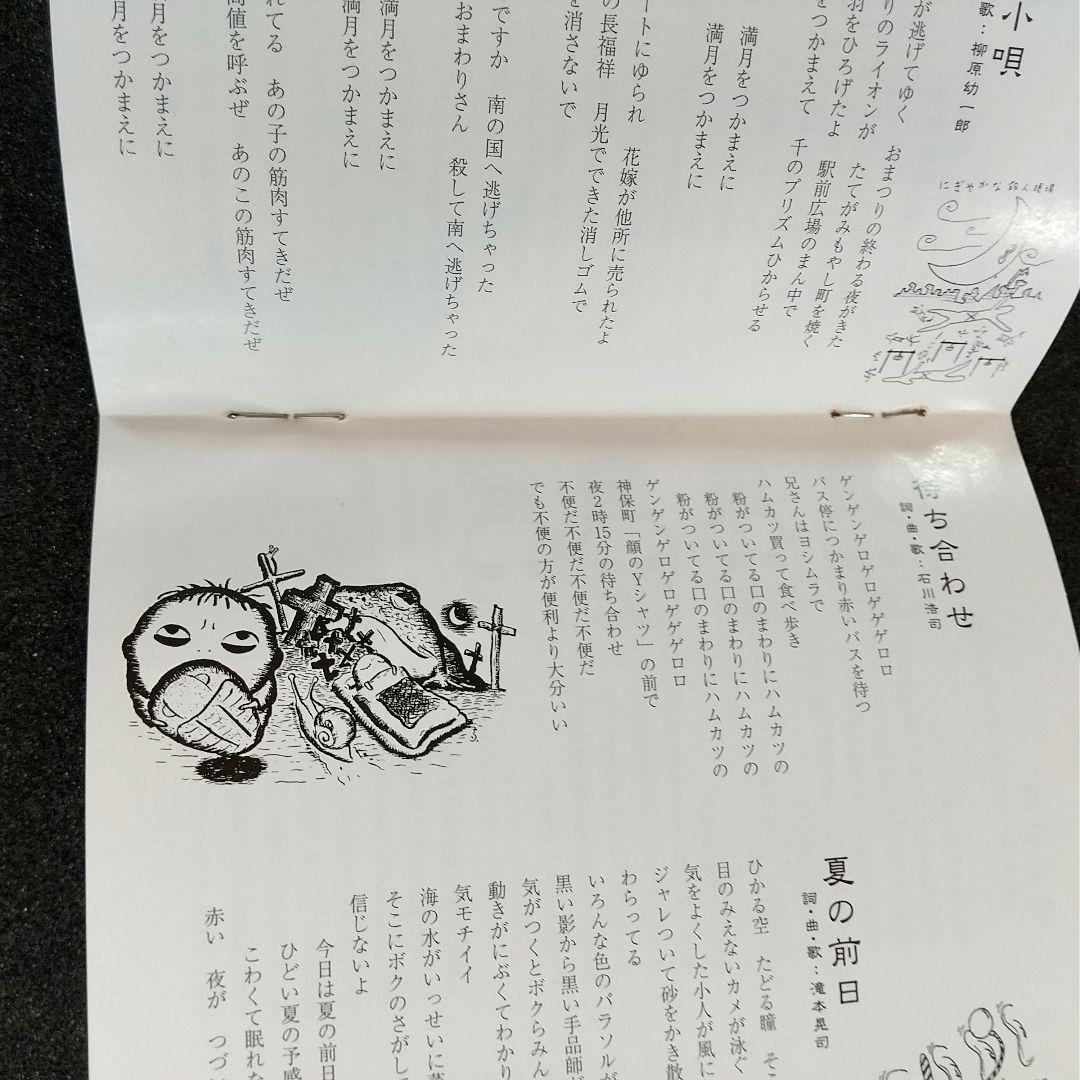 小唄
歌：柳原幼一郎
が逃げてゆく　おまつりの終わる夜がきた
りのライオンが　たてがみもやし町を焼く
羽をひろげたよ　駅前広場のまん中で
をつかまえて　千のプリズムひからせる
満月をつかまえに
満月をつかまえに
ートにゆられ　花嫁が他所に売られたよ
の長福祥　月光でできた消しゴムで
を消さないで
ですか　南の国へ逃げちゃった
おまわりさん　殺して南へ逃げちゃった
満月をつかまえに
満月をつかまえに
れてる　あの子の筋肉すてきだぜ
高値を呼ぶぜ　あのこの筋肉すてきだぜ
月をつかまえに
月をつかまえに
にぎやかな殺人現場
待ち合わせ
詞・曲・歌：石川浩司
ゲンゲンゲロゲロゲゲゲロロ
バス停につかまり赤いバスを待つ
兄さんはヨシムラで
ハムカツ買って食べ歩き
粉がついてる口のまわりにハムカツの
粉がついてる口のまわりにハムカツの
粉がついてる口のまわりにハムカツの
ゲンゲンゲロゲロゲゲゲロロ
神保町「顔のYシャツ」の前で
夜2時15分の待ち合わせ
不便だ不便だ不便だ不便だ
でも不便の方が便利より大分いい
夏の前日
詞・曲・歌：滝本晃司
ひかる空　たどる瞳　そこ
目のみえないカメが泳ぐ
気をよくした小人が風に
ジャレついて砂をかき散
わらってる
いろんな色のパラソルが
黒い影から黒い手品師が
気がつくとボクらみん
動きがにぶくてわかり
気モチイイ
海の水がいっせいに
そこにボクのさがして
信じないよ
今日は夏の前日
ひどい夏の予感
こわくて眠れな
赤い　夜が　つづ